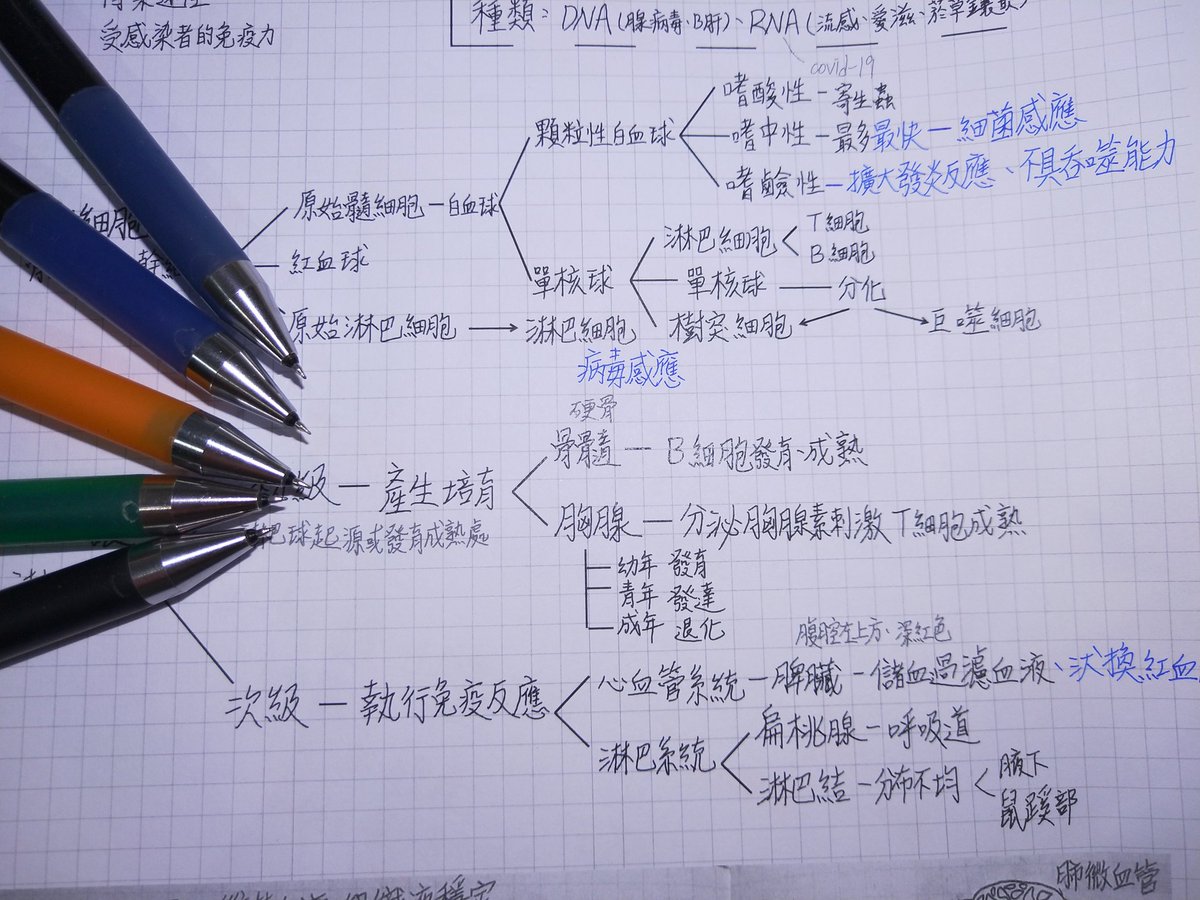 受感染者的免疫力
種類：DNA(腺病毒、B肝)、RNA(流感、愛滋、菸草鑲嵌)
covid-19
嗜酸性－寄生蟲
顆粒性白血球
嗜中性－最多最快－細菌感應
嗜鹼性－擴大發炎反應、不具吞噬能力
原始髓細胞－白血球
細胞
紅血球
淋巴細胞
T細胞
B細胞
單核球
單核球
分化
原始淋巴細胞
淋巴細胞
樹突細胞
巨噬細胞
病毒感應
硬骨
骨髓－B細胞發育、成熟
級－產生培育
胸腺－分泌胸腺素刺激T細胞成熟
巴球起源或發育成熟處
幼年 發育
青年 發達
成年 退化
腹腔左上方、深紅色
次級－執行免疫反應
心血管系統－脾臟－儲血過濾血液、汰換紅血
淋巴系統
扁桃腺－呼吸道
淋巴結－分布不均
腋下
鼠蹊部
肺微血管